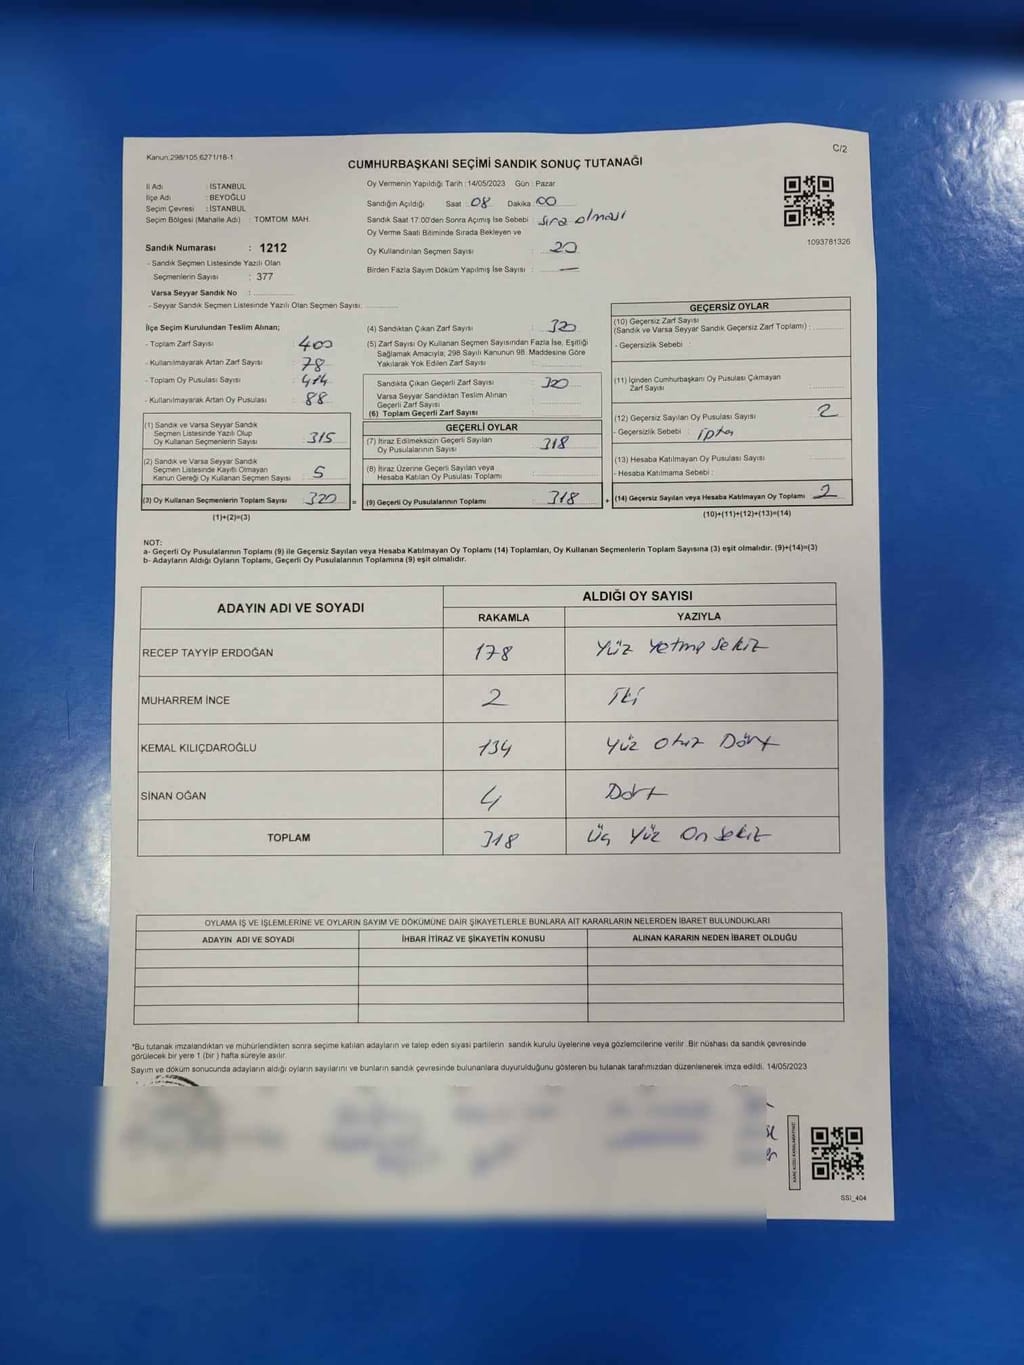 Kanun:298/105 6271/18-1
C/2
CUMHURBAŞKANI SEÇİMİ SANDIK SONUÇ TUTANAĞI
İl Adı : İSTANBUL
İlçe Adı : BEYOĞLU
Seçim Çevresi : İSTANBUL
Seçim Bölgesi (Mahalle Adı) : TOMTOM MAH.
Sandık Numarası : 1212
- Sandık Seçmen Listesinde Yazılı Olan
Seçmenlerin Sayısı : 377
Varsa Seyyar Sandık No :
- Seyyar Sandık Seçmen Listesinde Yazılı Olan Seçmen Sayısı:
Oy Vermenin Yapıldığı Tarih :14/05/2023 Gün : Pazar
Sandığın Açıldığı Saat : 08 Dakika : 00
Sandık Saat 17:00'den Sonra Açımış İse Sebebi : Sıra olması
Oy Verme Saati Bitiminde Sırada Bekleyen ve
Oy Kullandırılan Seçmen Sayısı : 20
Birden Fazla Sayım Döküm Yapılmış İse Sayısı : —
1093781326
İlçe Seçim Kurulundan Teslim Alınan;
- Toplam Zarf Sayısı : 400
- Kullanılmayarak Artan Zarf Sayısı : 78
- Toplam Oy Pusulası Sayısı : 414
- Kullanılmayarak Artan Oy Pusulası : 88
(1) Sandık ve Varsa Seyyar Sandık
Seçmen Listesinde Yazılı Olup
Oy Kullanan Seçmenlerin Sayısı : 315
(2) Sandık ve Varsa Seyyar Sandık
Seçmen Listesinde Kayıtlı Olmayan
Kanun Gereği Oy Kullanan Seçmen Sayısı : 5
(3) Oy Kullanan Seçmenlerin Toplam Sayısı : 320 =
(1)+(2)=(3)
(4) Sandıktan Çıkan Zarf Sayısı : 320
(5) Zarf Sayısı Oy Kullanan Seçmen Sayısından Fazla İse, Eşitliği
Sağlamak Amacıyla; 298 Sayılı Kanunun 98. Maddesine Göre
Yakılarak Yok Edilen Zarf Sayısı :
Sandıkta Çıkan Geçerli Zarf Sayısı : 320
Varsa Seyyar Sandıktan Teslim Alınan
Geçerli Zarf Sayısı :
(6) Toplam Geçerli Zarf Sayısı :
GEÇERLİ OYLAR
(7) İtiraz Edilmeksizin Geçerli Sayılan
Oy Pusulasının Sayısı : 318
(8) İtiraz Üzerine Geçerli Sayılan veya
Hesaba Katılan Oy Pusulası Toplamı :
(9) Geçerli Oy Pusulalarının Toplamı : 318 +
GEÇERSİZ OYLAR
(10) Geçersiz Zarf Sayısı
(Sandık ve Varsa Seyyar Sandık Geçersiz Zarf Toplamı) :
- Geçersizlik Sebebi :
(11) İçinden Cumhurbaşkanı Oy Pusulası Çıkmayan
Zarf Sayısı :
(12) Geçersiz Sayılan Oy Pusulası Sayısı : 2
- Geçersizlik Sebebi : iptal
(13) Hesaba Katılmayan Oy Pusulası Sayısı :
- Hesaba Katılmama Sebebi :
(14) Geçersiz Sayılan veya Hesaba Katılmayan Oy Toplamı : 2
(10)+(11)+(12)+(13)=(14)
NOT:
a- Geçerli Oy Pusulalarının Toplamı (9) ile Geçersiz Sayılan veya Hesaba Katılmayan Oy Toplamı (14) Toplamları, Oy Kullanan Seçmenlerin Toplam Sayısına (3) eşit olmalıdır. (9)+(14)=(3)
b- Adayların Aldığı Oyların Toplamı, Geçerli Oy Pusulalarının Toplamına (9) eşit olmalıdır.
ADAYIN ADI VE SOYADI
ALDIĞI OY SAYISI
RAKAMLA YAZIYLA
RECEP TAYYİP ERDOĞAN 178 Yüz Yetmiş Sekiz
MUHARREM İNCE 2 İki
KEMAL KILIÇDAROĞLU 134 Yüz Otuz Dört
SİNAN OĞAN 4 Dört
TOPLAM 318 Üç Yüz On Sekiz
OYLAMA İŞ VE İŞLEMLERİNE VE OYLARIN SAYIM VE DÖKÜMÜNE DAİR ŞİKAYETLERLE BUNLARA AİT KARARLARIN NELERDEN İBARET BULUNDUKLARI
ADAYIN ADI VE SOYADI İHBAR İTİRAZ VE ŞİKAYETİN KONUSU ALINAN KARARIN NEDEN İBARET OLDUĞU
*Bu tutanak imzalandıktan ve mühürlendikten sonra seçime katılan adayların ve talep eden siyasi partilerin sandık kurulu üyelerine veya gözlemcilerine verilir. Bir nüshası da sandık çevresinde
görülecek bir yere 1 (bir) hafta süreyle asılır.
Sayım ve döküm sonucunda adayların aldığı oyların sayılarını ve bunların sandık çevresinde bulunanlara duyurulduğunu gösteren bu tutanak tarafımızdan düzenlenerek imza edildi. 14/05/2023
SSI_404